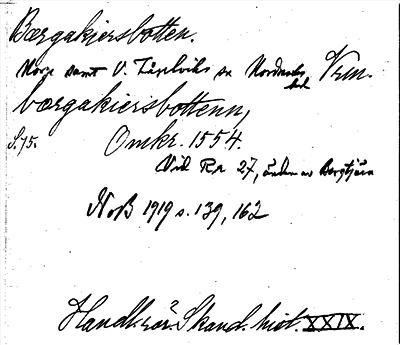 Bærgakiersbotten.
Norge samt V. Tåselviks sn Nordmarks hd Vrm.
bærgakiersbottenn,
S. 75. Omkr. 1554.
Vid Rr 27, änden av Bergtjärn
NoB 1919 s. 139, 162
Handl. rör. Skand. hist. XXIX.